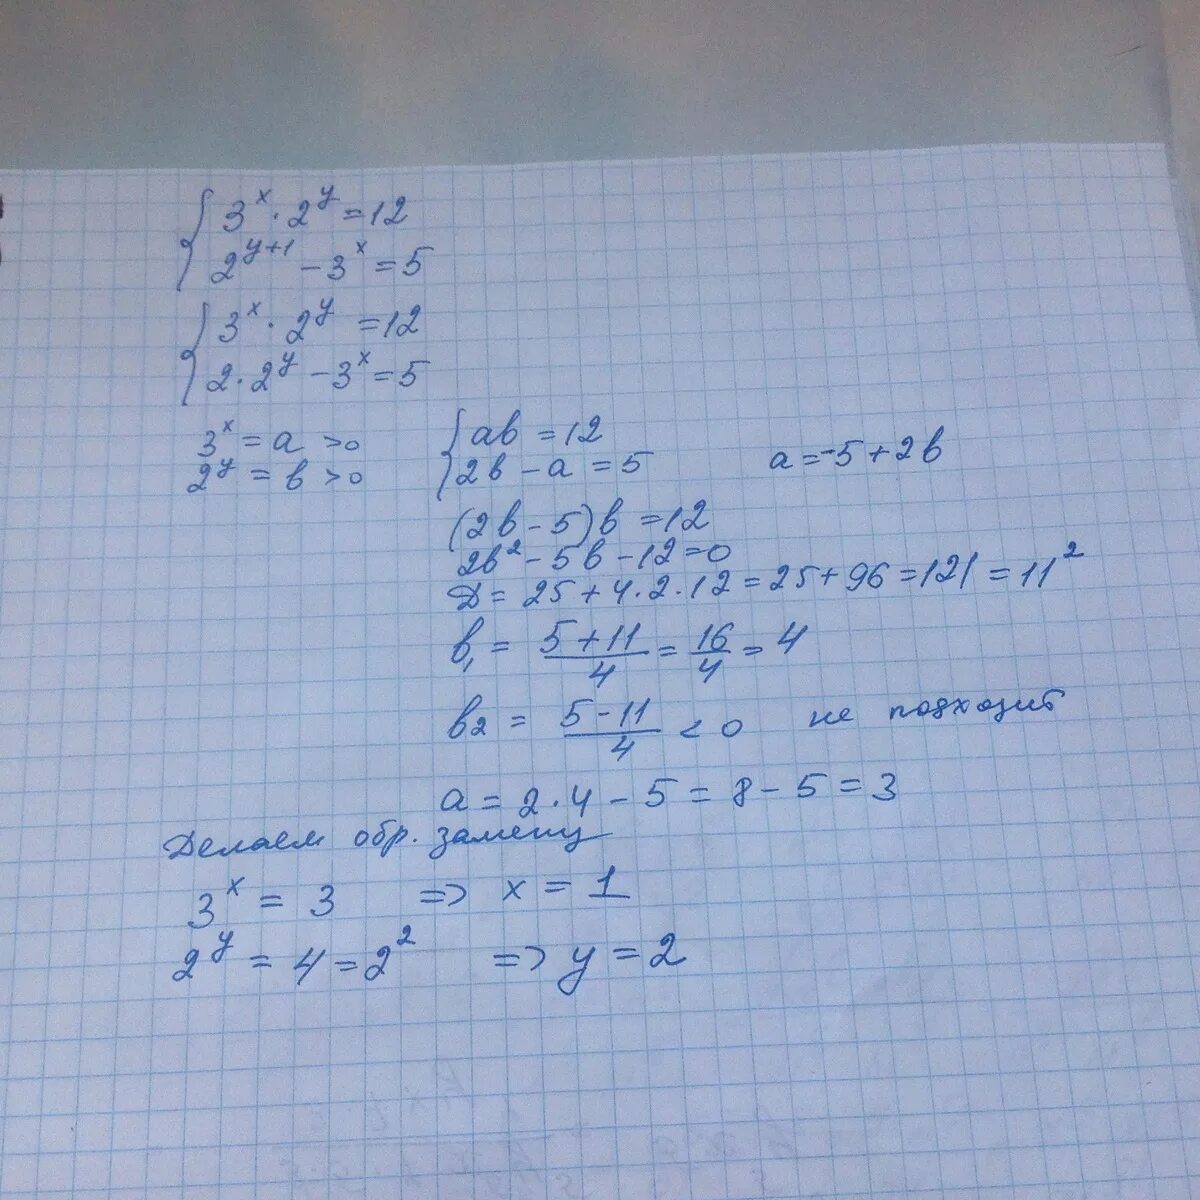 3^x · 2^y = 12
2^(y+1) - 3^x = 5
3^x · 2^y = 12
2 · 2^y - 3^x = 5
3^x = a > 0
2^y = b > 0
ab = 12
2b - a = 5
a = -5 + 2b
(2b - 5)b = 12
2b² - 5b - 12 = 0
Д = 25 + 4·2·12 = 25 + 96 = 121 = 11²
b₁ = (5+11)/4 = 16/4 = 4
b₂ = (5-11)/4 < 0 не подходит
a = 2·4 - 5 = 8 - 5 = 3
Делаем обр. замену
3^x = 3 => x = 1
2^y = 4 = 2² => y = 2